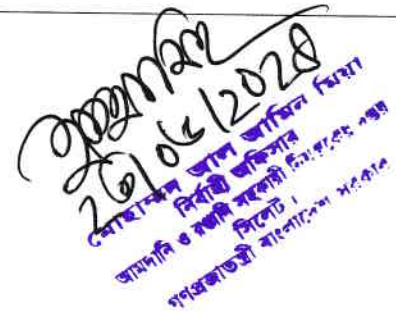 মোহাম্মদ আল আমিন মিয়া
নির্বাহী অফিসার
আমদানি ও রপ্তানি সহকারী নিয়ন্ত্রকের দপ্তর
সিলেট।
গণপ্রজাতন্ত্রী বাংলাদেশ সরকার